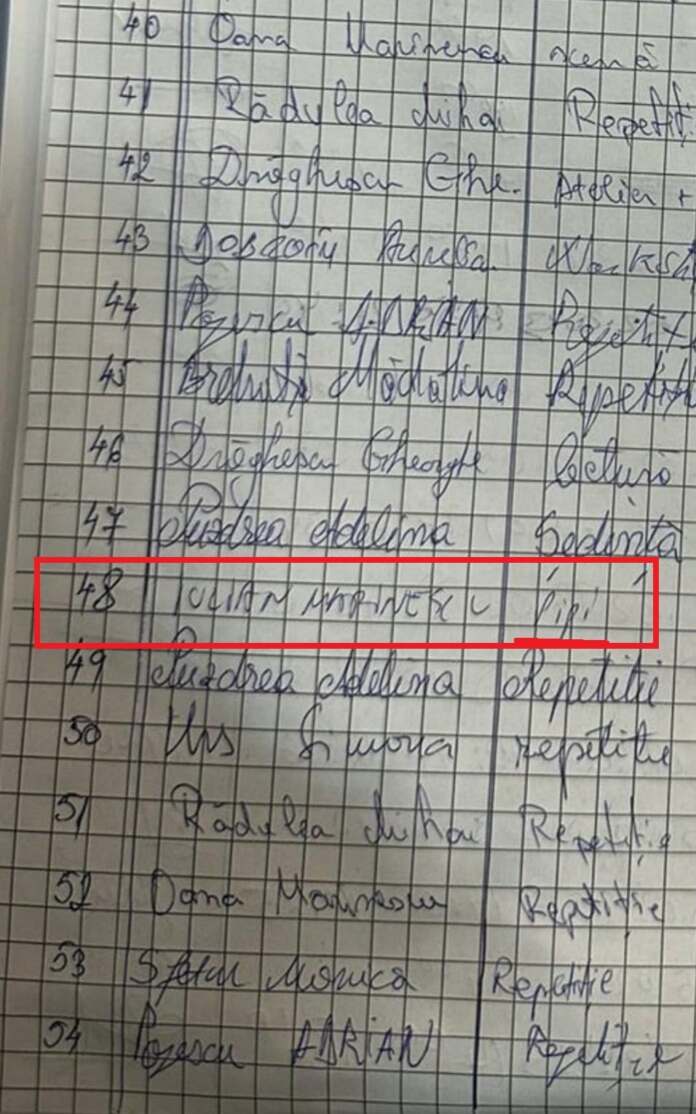 40 Oana Marinescu scenă
41 Rădulga Mihai Repetiț
42 Drăghescu Ghe. Atelier +
43 Aurelia Worksh
44 ADRIAN Repetiț
45 Mădălina Repetiți
46 Drăghescu Gheorghe lectură
47 Puzdrea Adelina Sedintă
48 IULIAN MARINESCU Pipi
49 Puzdrea Adelina Repetitie
50 Urs Simona repetitie
51 Rădulga Mihai Repetiție
52 Oana Marinescu Repetiție
53 Monica Repetiție
54 Pojescu ADRIAN Repetiție